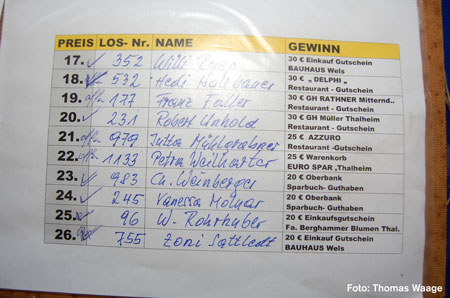 PREIS LOS- Nr. NAME GEWINN
17. 352 Willi 30 € Einkauf Gutschein
BAUHAUS Wels
18. 532 Hedi Holzbauer 30 € „ DELPHI „
Restaurant - Gutschein
19. offen 177 Franz Faller 30 € GH RATHNER Mitternd..
Restaurant - Gutschein
20. 231 Robert Unhold 30 € GH Müller Thalheim
Restaurant - Gutschein
21. offen 979 Jutta Mühlgrabner 25 € AZZURO
Restaurant -Gutschein
22. offen 1133 Petra Weilharter 25 € Warenkorb
EURO SPAR ,Thalheim
23. offen 983 Ch. Weinberger 20 € Oberbank
Sparbuch- Guthaben
24. 245 Vanessa Molnar 20 € Oberbank
Sparbuch- Guthaben
25. 96 W. Rohrhuber 20 € Einkaufsgutschein
Fa. Berghammer Blumen Thal.
26. 755 Toni Sattledt 20 € Einkauf Gutschein
BAUHAUS Wels
Foto: Thomas Waage